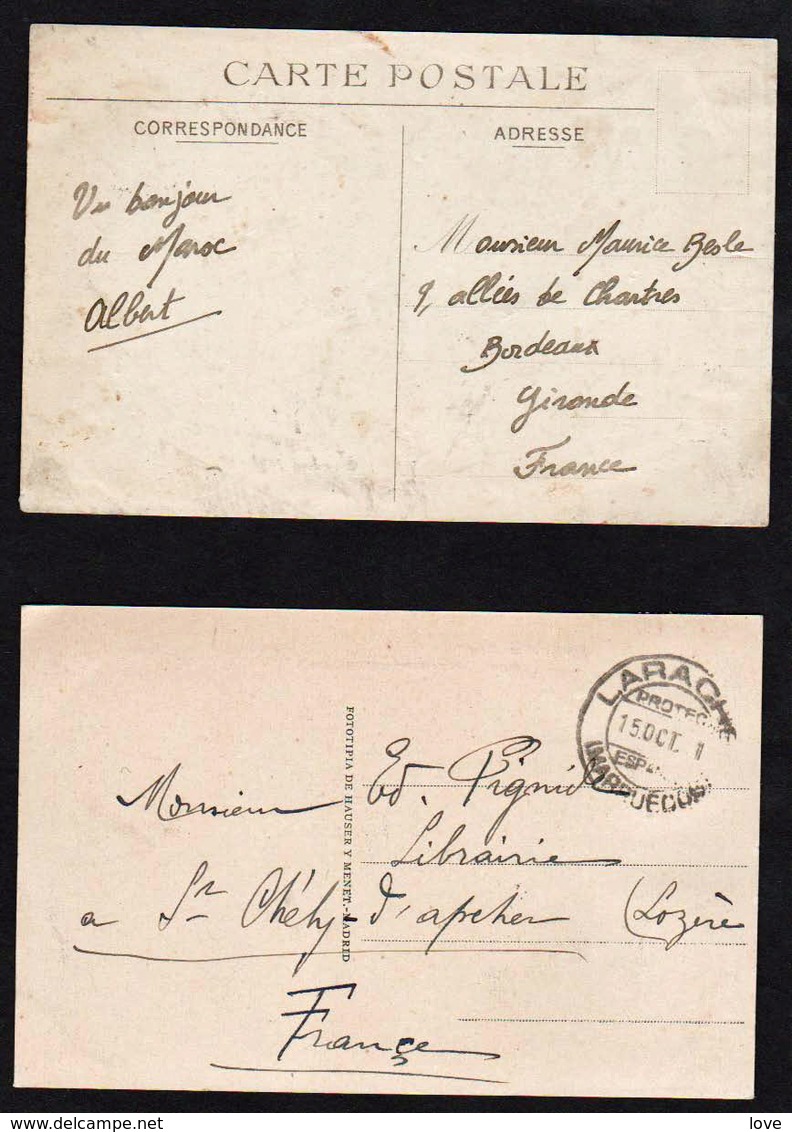 CARTE POSTALE
CORRESPONDANCE
ADRESSE
Un bonjour
du Maroc
Albert
Monsieur Maurice Besle
9, allées de Chartres
Bordeaux
Gironde
France
LARACHE
PROTEC
15 OCT. 1
ESPA
(MARRUECOS)
FOTOTIPIA DE HAUSER Y MENET.-MADRID
Monsieur Ed. Pignide
Librairie
a St Chély d'apcher (Lozère
France
love